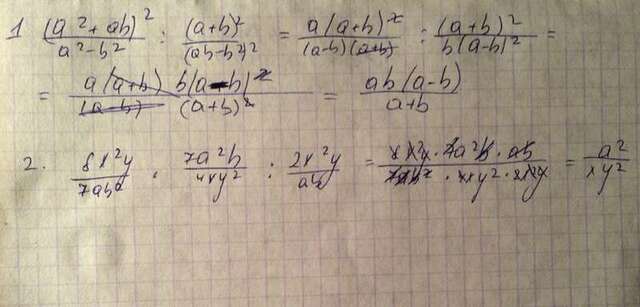 1 (a²+ab)²/(a²-b²) : (a+b)²/(ab-b²)² = a(a+b)²/((a-b)(a+b)) : (a+b)²/(b(a-b)²) =
= a(a+b) b(a-b)²/((a-b) (a+b)²) = ab(a-b)/(a+b)
2. 8x²y/7ab² · 7a²b/4xy² : 2x²y/ab = 8x²y · 7a²b · ab/(7ab² · 4xy² · 2x²y) = a²/xy²